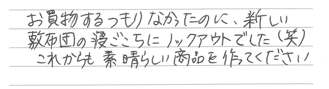 お買物するつもりなかったのに、新しい
敷布団の寝ごこちにノックアウトでした(笑)
これからも素晴らしい商品を作ってください